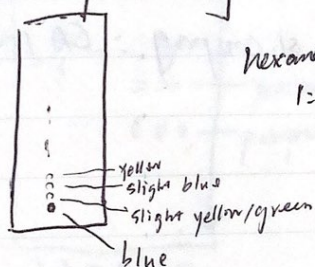 hexane
1:
yellow
slight blue
slight yellow/green
blue